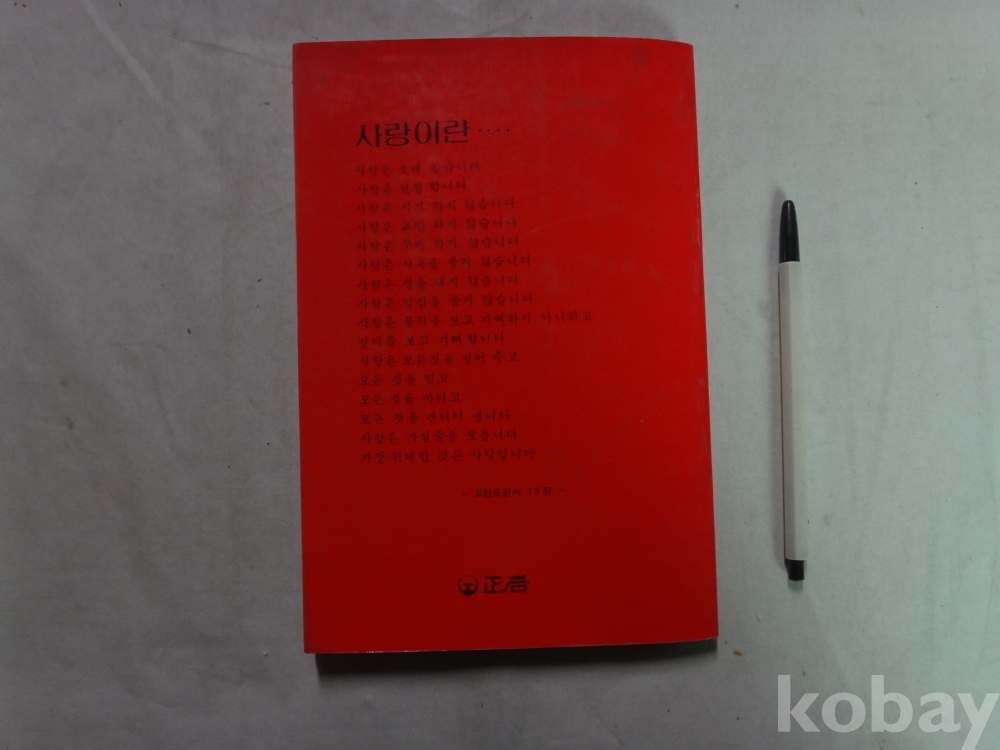 사랑이란····
사랑은 오래 참습니다
사랑은 친절 합니다
사랑은 시기 하지 않습니다
사랑은 교만 하지 않습니다
사랑은 무례 하지 않습니다
사랑은 사욕을 품지 않습니다
사랑은 성을 내지 않습니다
사랑은 앙심을 품지 않습니다
사랑은 불의를 보고 기뻐하지 아니하고
진리를 보고 기뻐 합니다
사랑은 모든것을 덮어 주고
모든 것을 믿고
모든 것을 바라고
모든 것을 견디어 냅니다
사랑은 가실줄을 모릅니다
가장 위대한 것은 사랑입니다
- 고린도전서 13장 -
正岩
kobay